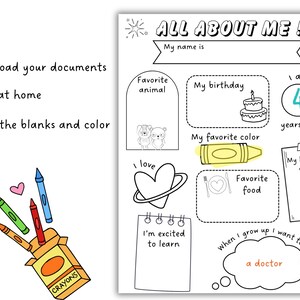 oad your documents
at home
the blanks and color
CRAYONS
ALL ABOUT ME
My name is
Favorite
animal
My birthday
I a
4
years
My favorite color
I love
Favorite
food
My
I'm excited
to learn
When I grow up I want t
a doctor